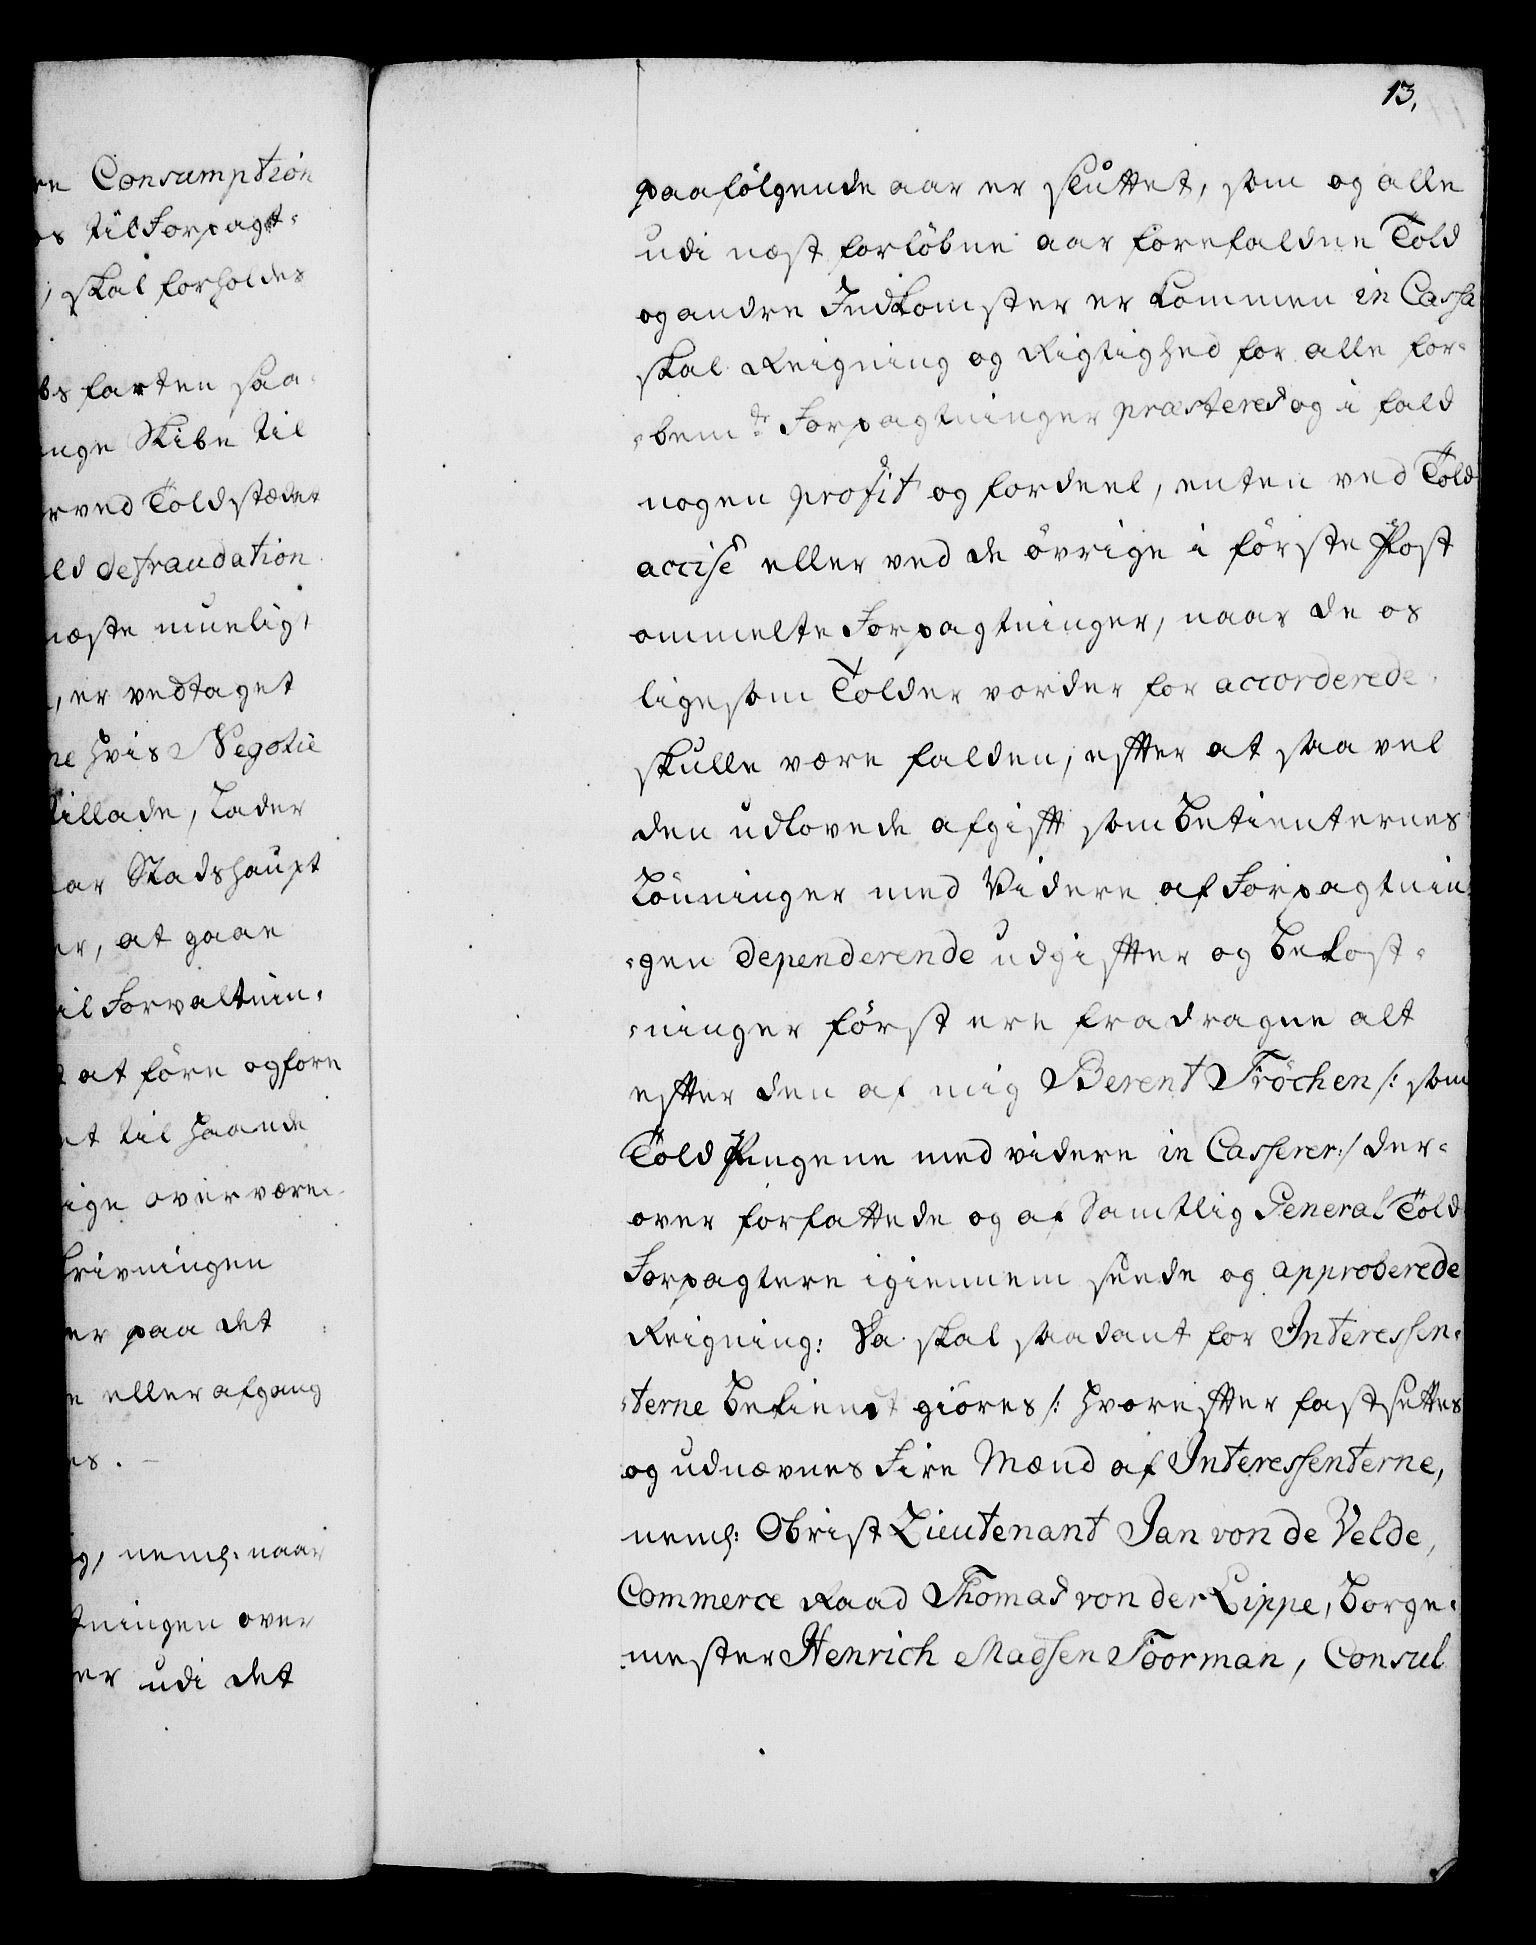 re Consumption
os til Forpagt-
skal forholdes
farten saa-
ange Skibe til
rved Toldstædet
defraudation
næste mueligt
, er vedtaget
ne hvis Negotie
tillade, lader
Stadshaupt
er, at gaae
til Forvaltnin-
at före og fore
et til haande
ige overvære-
krivningen
er paa det
eller afgang
es. -
nemh: naar
tningen over
er udi det
13.
paafölgende aar er sluttet, som og alle
udi næst forlöbne aar forefaldne Told
og andre Indkomster er kommen in Cassa
skal Reigning og Rigtighed for alle for-
-bemte Forpagtninger præstered og i fald
nogen profit og fordeel, enten ved Told
accise eller ved de övrige i förste Post
ommelte Forpagtninger, naar de os
ligesom Tolder vorder for accorderede
skulle være falden, efter at saavel
den udlovede afgift som betienternes
Lönninger med Videre af Forpagtnin
-gen dependerende udgifter og bekost-
-ninger först ere fradragne alt
efter den af mig Berent Fröchen /: som
Told Pengene med videre in Casserer :/ der-
over forfattede og af Samtlig General Told
Forpagtere igiennem seede og approberede
Reigning: Da skal saadant for Interessen-
-terne bekiendt giöres /: hvorefter fastsettes
og udnævnes Fire Mænd af Interessenterne,
nemh: Obrist Lieutenant Jan von de Velde,
Commerce Raad Thomas von der Lippe, borge-
-mester Henrich Madsen Föorman, Consul